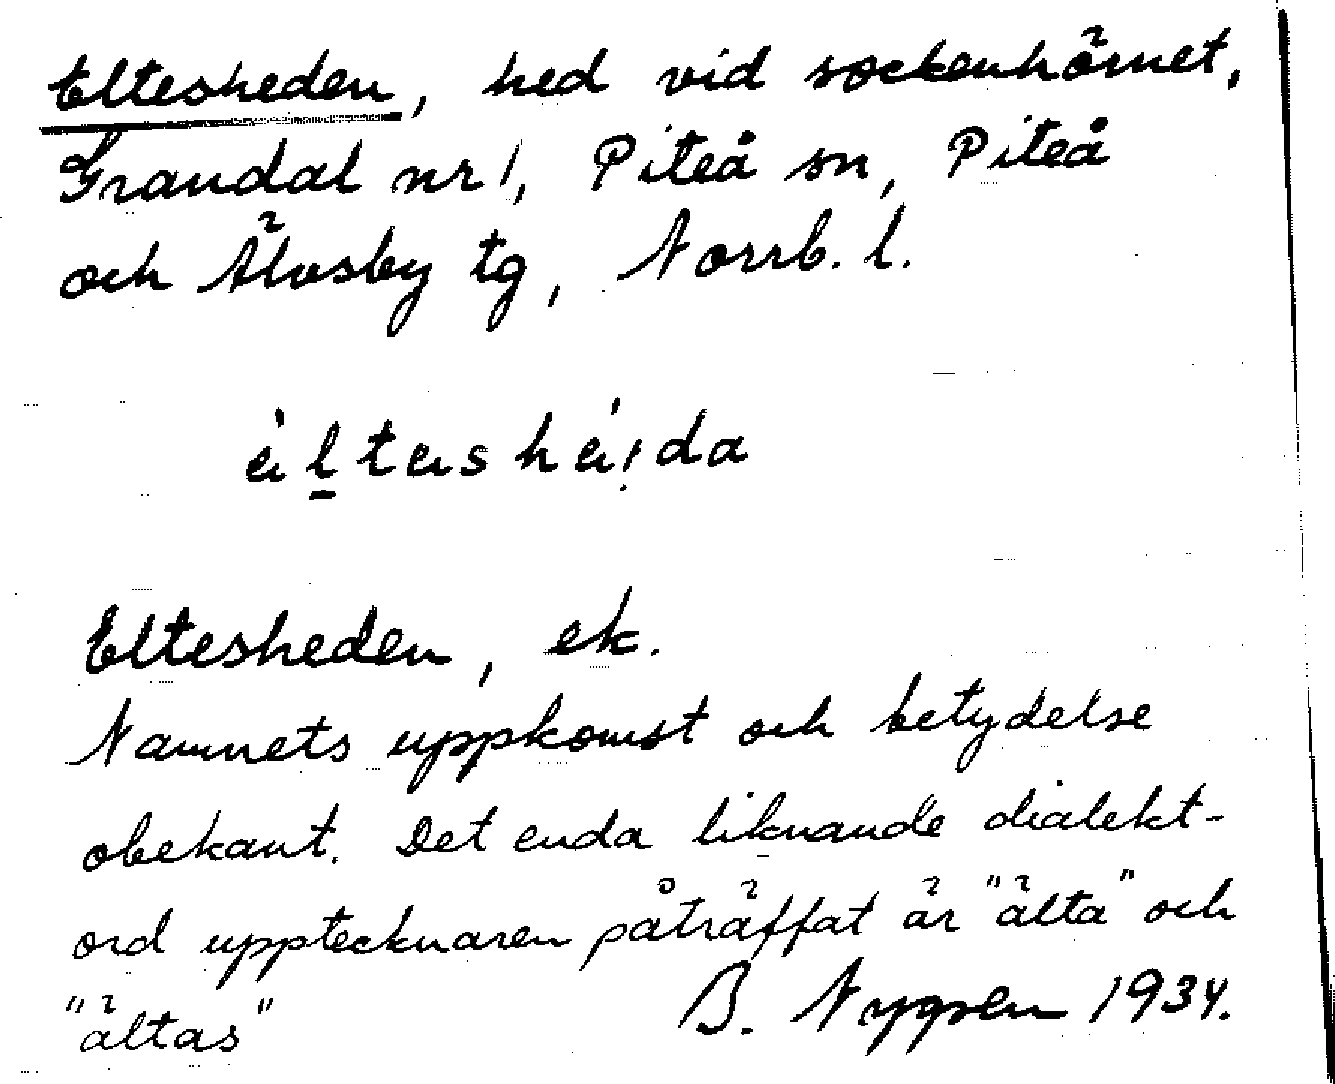 Eltesheden, hed vid sockenhörnet,
Grandal nr 1, Piteå sn, Piteå
och Älvsby tg, Norrb. l.
Eltesheden, ek.
Namnets uppkomst och betydelse
obekant. Det enda liknande dialekt-
ord upptecknaren påträffat är "älta" och
"ältas"
B. Nygren 1934.